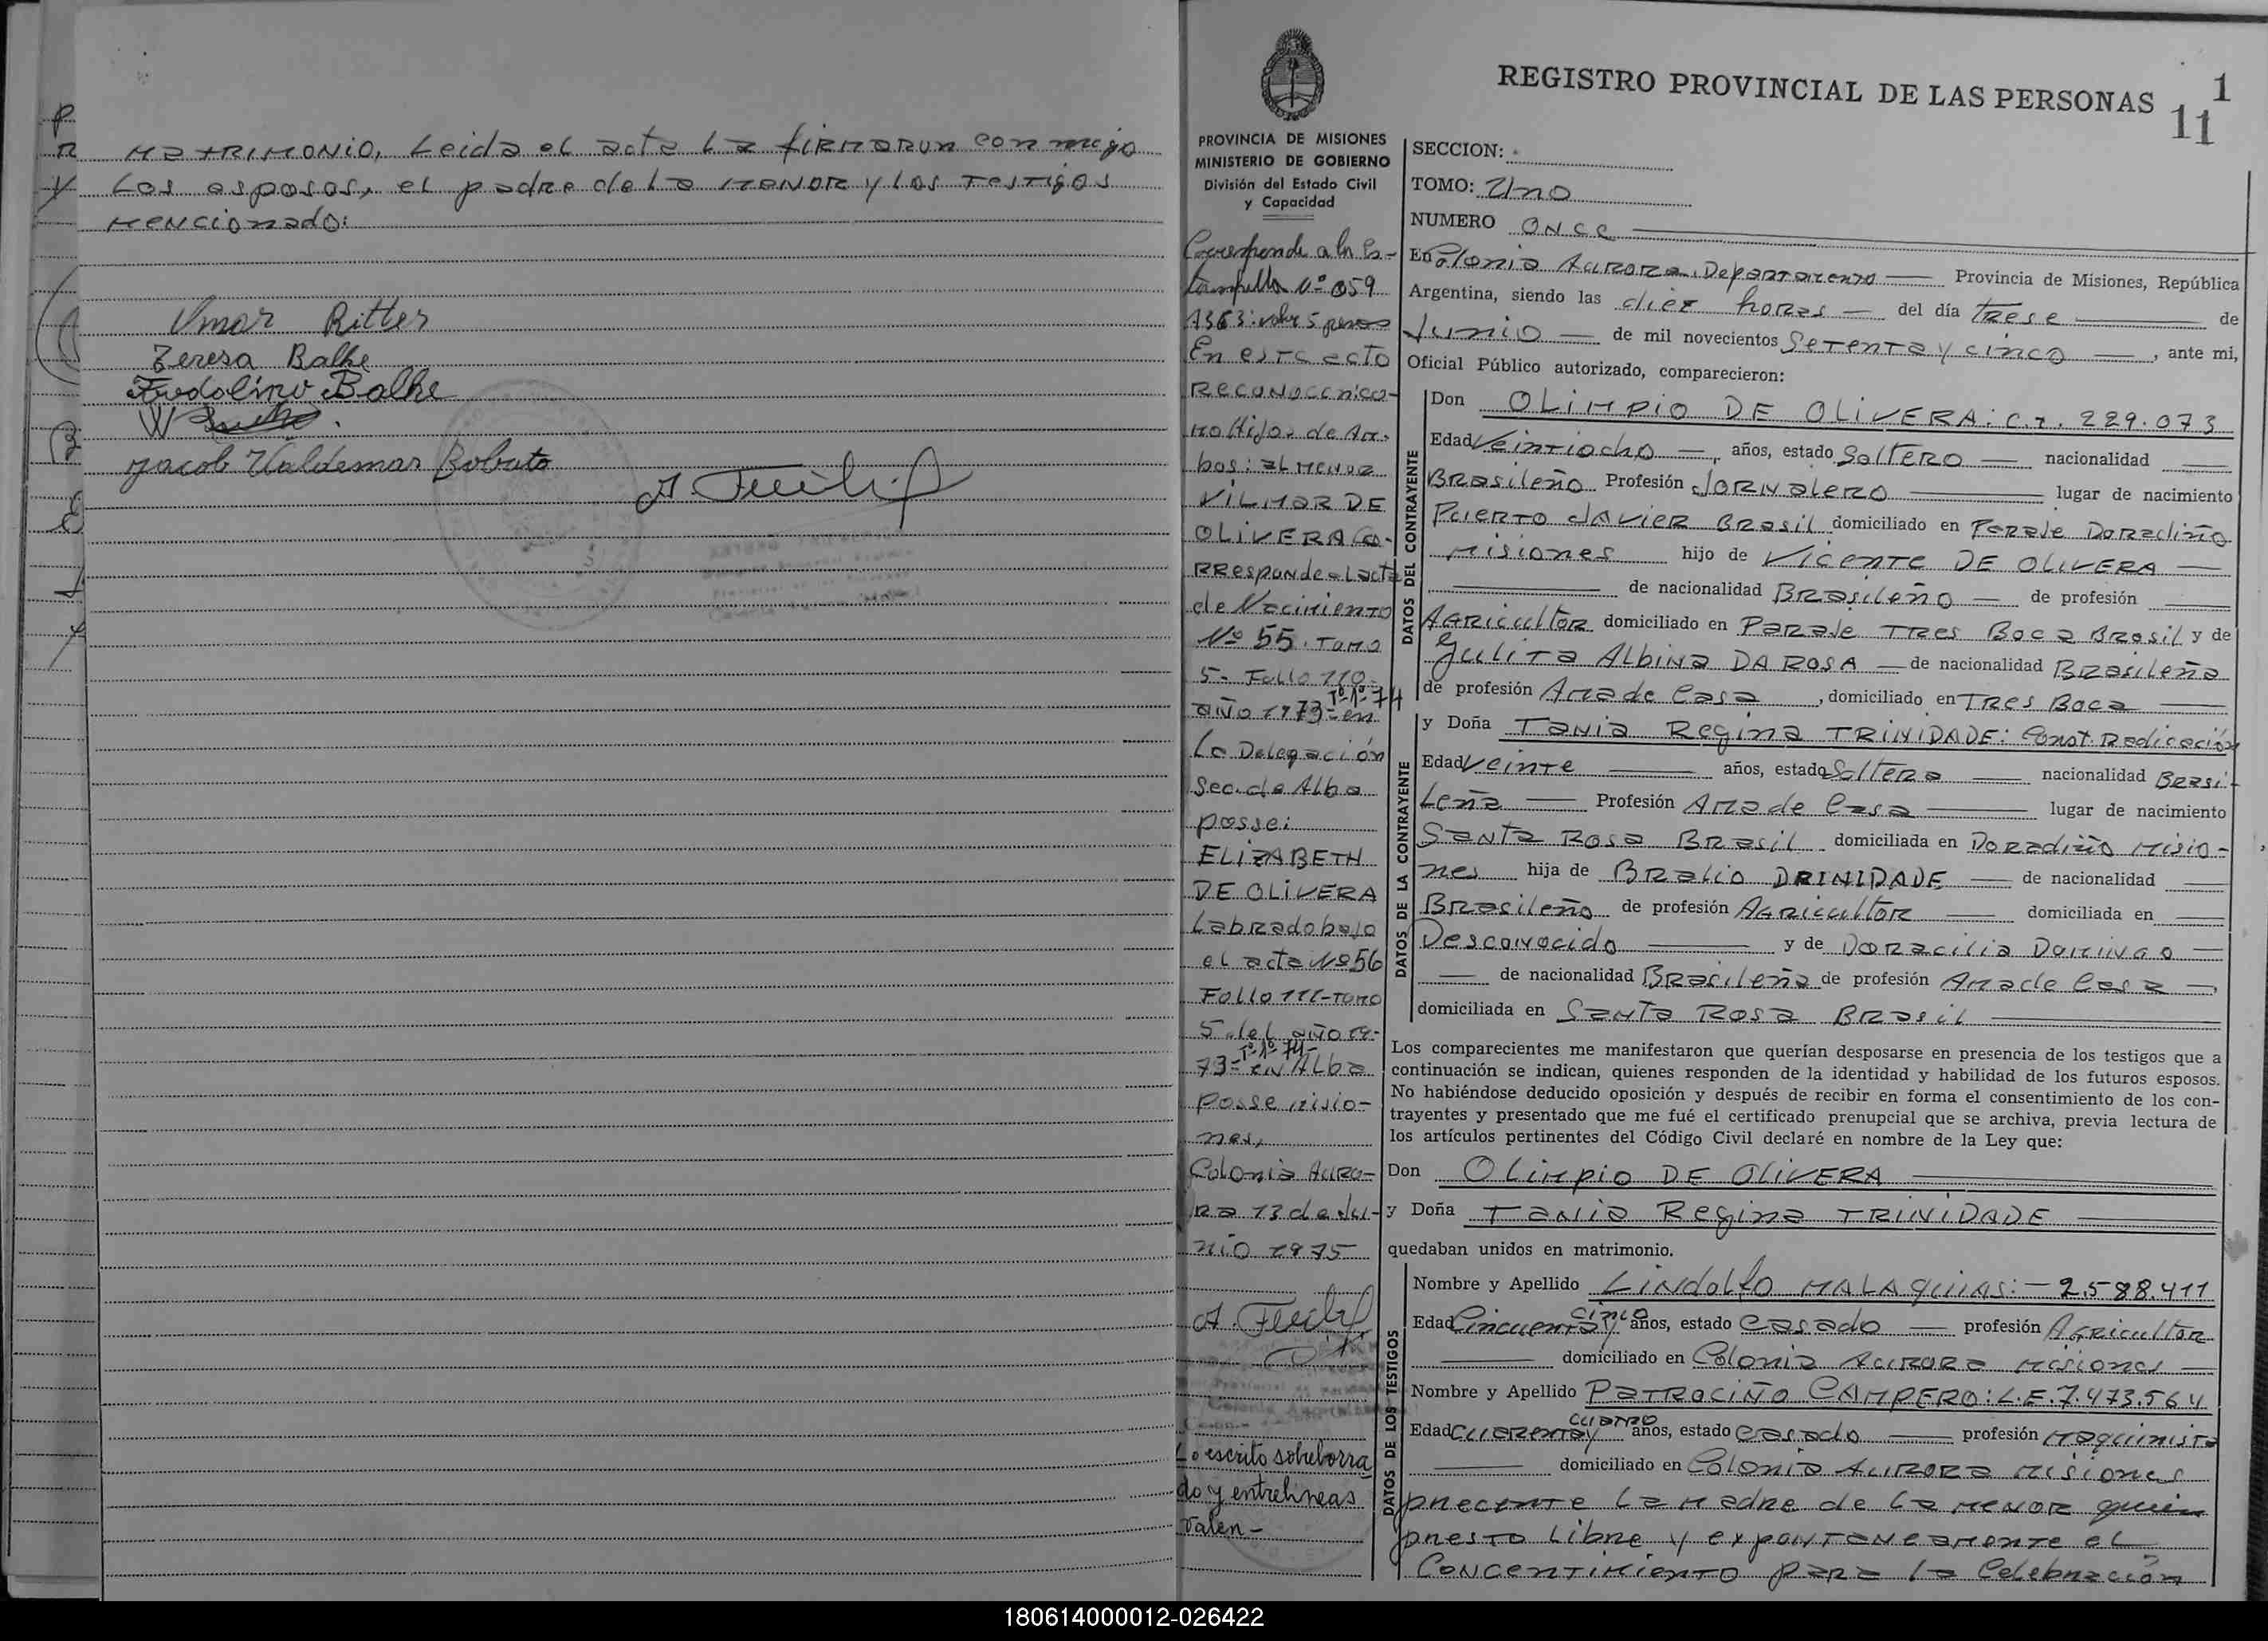 MATRIMONIO, Leida el acta La firmarun conmigo
Los esposos, el padre de La MENOR y los Testigos
mencionado:
Omar Ritter
Teresa Balke
Fredolino Balke
Jacob Valdemar Bobato
REGISTRO PROVINCIAL DE LAS PERSONAS
1
11
PROVINCIA DE MISIONES
MINISTERIO DE GOBIERNO
División del Estado Civil
y Capacidad
Corresponde a la Es-
tampilla Nº 059
1363: valor 5 pesos
En este acto
Reconocen co-
mo Hijos de Am-
bos: al menor
VILMAR DE
OLIVERA Co-
RResponde al acta
de Nacimiento
Nº 55. Tomo
5- Folio 110-
Tº 1º 74
año 1973- en
La Delegación
Sec. de Alba
posse:
ELIZABETH
DE OLIVERA
Labrado bajo
el acta Nº 56
Folio 111-Tomo
5 del año 19-
Tº 1º 74-
73- en Alba
Posse misio-
nes,
Colonia Auro-
Ra 13 de Ju-
nio 1975
Lo escrito sobreborra
do y entrelineas
valen-
SECCION:
TOMO: Uno
NUMERO ONCE
En Colonia Aurora. Departamento Provincia de Misiones, República
Argentina, siendo las diez horas — del día Trese de
Junio — de mil novecientos Setenta y cinco — , ante mi,
Oficial Público autorizado, comparecieron:
DATOS DEL CONTRAYENTE
Don OLIMPIO DE OLIVERA: C.I. 229.073
Edad Veintiocho —, años, estado Soltero — nacionalidad
Brasileño Profesión Jornalero lugar de nacimiento
Puerto Javier Brasil domiciliado en Paraje Doradiño
Misiones hijo de Vicente DE OLIVERA
de nacionalidad Brasileño — de profesión
Agricultor domiciliado en Paraje Tres Boca Brasil y de
Julita Albina DA ROSA — de nacionalidad Brasileña
de profesión Ama de Casa , domiciliado en Tres Boca
DATOS DE LA CONTRAYENTE
y Doña Tania Regina TRINIDADE: Const. Radicación
Edad Veinte años, estado Soltera — nacionalidad Brasi-
Leña — Profesión Ama de Casa lugar de nacimiento
Santa Rosa Brasil domiciliada en Doradiño Misio-
nes hija de Bralio DRINIDADE — de nacionalidad
Brasileño de profesión Agricultor domiciliada en
Desconocido y de Doracilia Domingo
de nacionalidad Brasileña de profesión Ama de Casa —,
domiciliada en Santa Rosa Brasil
Los comparecientes me manifestaron que querían desposarse en presencia de los testigos que a
continuación se indican, quienes responden de la identidad y habilidad de los futuros esposos.
No habiéndose deducido oposición y después de recibir en forma el consentimiento de los con-
trayentes y presentado que me fué el certificado prenupcial que se archiva, previa lectura de
los artículos pertinentes del Código Civil declaré en nombre de la Ley que:
Don Olimpio DE OLIVERA
y Doña Tania Regina TRINIDADE
quedaban unidos en matrimonio.
DATOS DE LOS TESTIGOS
Nombre y Apellido Lindolfo MALAQUIAS: - 2.588.411
Edad Cincuenta y cinco años, estado Casado — profesión Agricultor
domiciliado en Colonia Aurora Misiones
Nombre y Apellido Patrociño CAMPERO: L.E. 7.473.564
Edad cuarenta y cuatro años, estado Casado profesión maquinista
domiciliado en Colonia Aurora Misiones
precente La Madre de La menor quien
presto Libre y expontaneamente el
Concentimiento para la Celebración
180614000012-026422